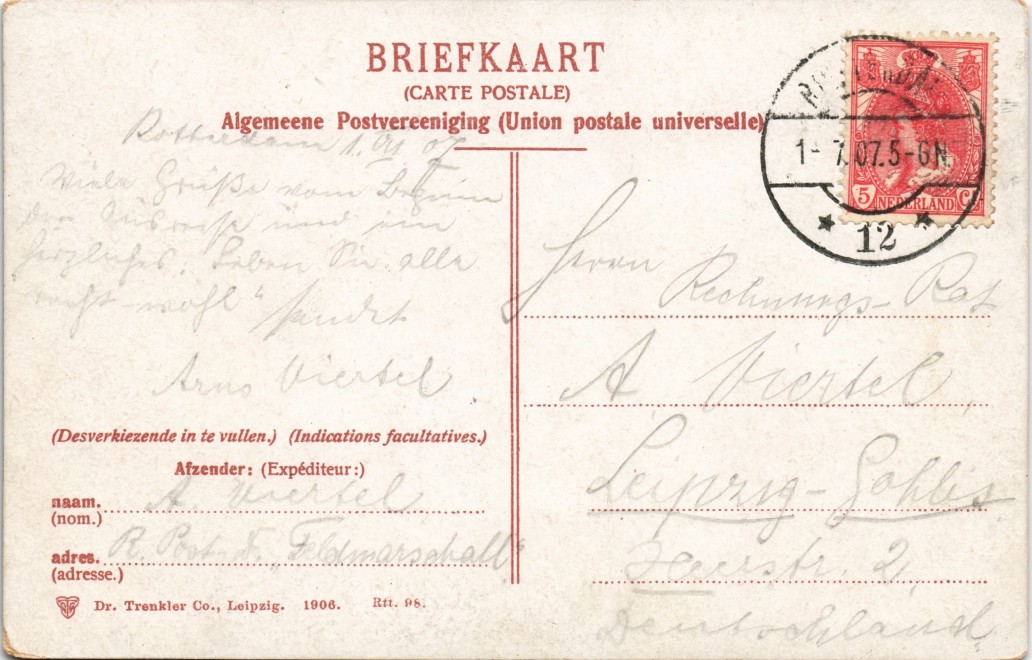 BRIEFKAART
(CARTE POSTALE)
Algemeene Postvereeniging (Union postale universelle)
ROTTERDAM
1- 7.07.5-6N.
12
5 NEDERLAND C
Rotterdam 1. VII 07
Viele Grüße vom Beginn
der Ausreise und ein
herzliches "Leben Sie alle
recht wohl" sendet
Arno Viertel.
Herrn
Rechnungs-Rat
A Viertel,
Leipzig-Gohlis
str. 2
Deutschland
(Desverkiezende in te vullen.) (Indications facultatives.)
Afzender: (Expéditeur:)
naam. A. Viertel
(nom.)
adres. R. Post-D. "Feldmarschall"
(adresse.)
Dr. Trenkler Co., Leipzig. 1906. Rtt. 98.